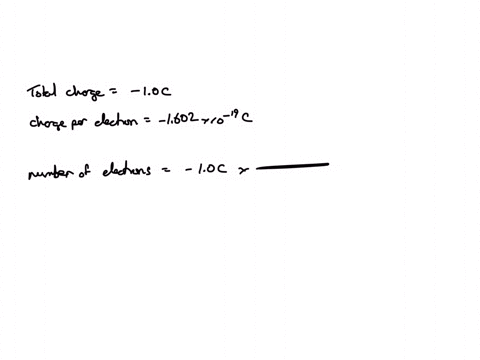 Total charge = -1.0C
charge per electron = -1.602 × 10⁻¹⁹ C
number of electrons = -1.0C ×